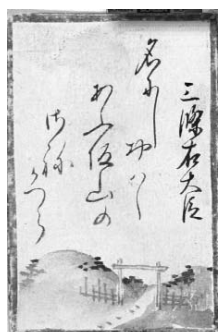 三條右大臣
名にし於はゝ
あふ坂山の
さね
かつら